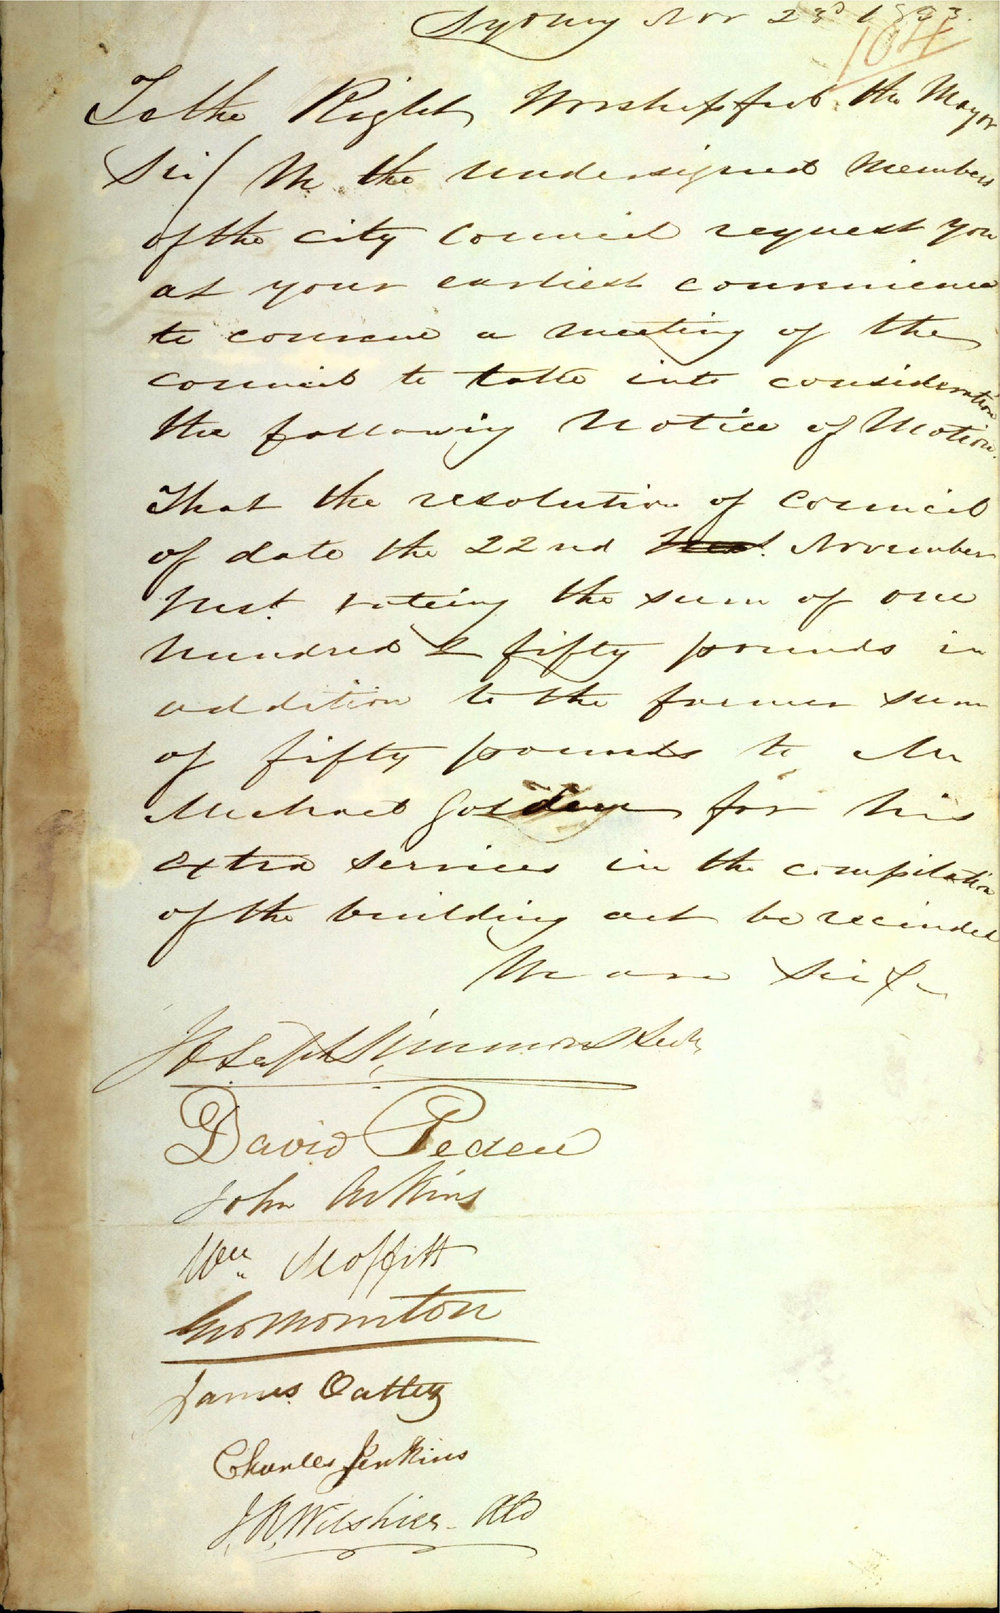 Sydney Nov 23rd 1843.
104
To the Right Worshipful the Mayor
Sir/ We the undersigned Members
of the City Council request you
at your earliest convenience
to convene a meeting of the
council to take into consideration
the following Notice of Motion.
That the resolution of Council
of date the 22nd November
Inst voteing the sum of one
hundred & fifty pounds in
addition to the former sum
of fifty pounds to Mr
Michael Golden for his
extra services in the compilation
of the building act be recinded
We are Sir &c
Joseph Simmons
David Peden
John
Wm Moffitt
James Oatley
Charles Jenkins
J. R. Wilshire Ald